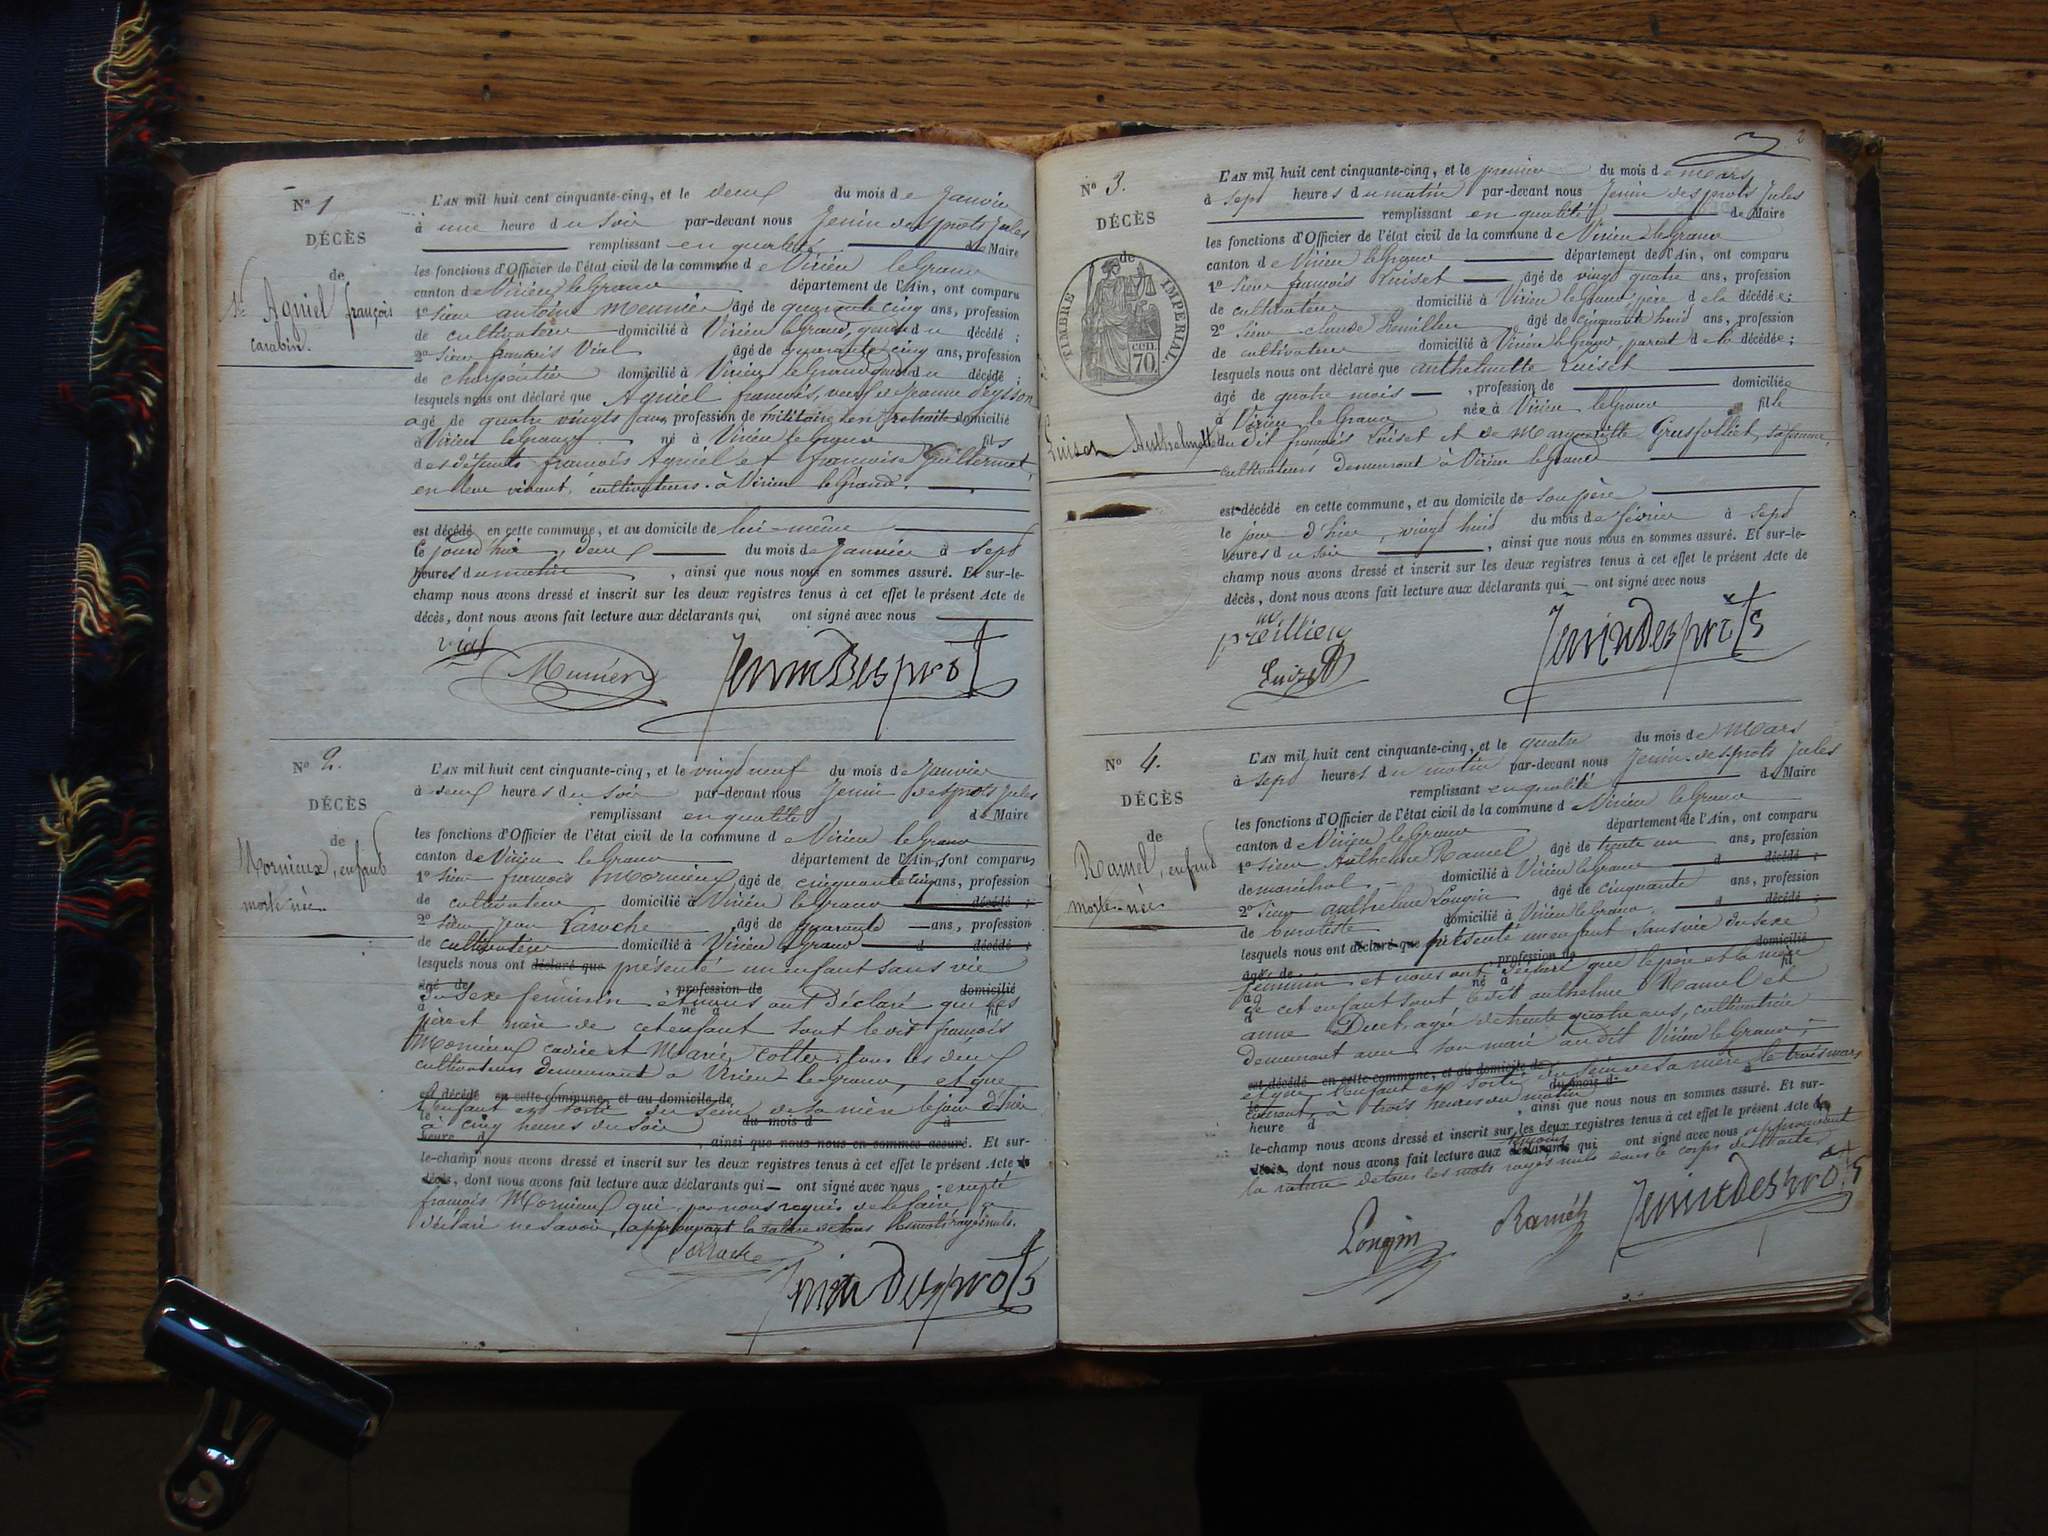 N° 1
DÉCÈS
de
Agniel françois
carabin.
L'AN mil huit cent cinquante-cinq, et le deux du mois de Janvier
à une heure du soir par-devant nous Jenin desprots Jules
remplissant en qualité de Maire
les fonctions d'Officier de l'état civil de la commune de Virieu le Grand
canton de Virieu le Grand département de l'Ain, ont comparu
1° Sieur antoine Meunier âgé de quarante cinq ans, profession
de cultivateur domicilié à Virieu le Grand, gendre du décédé ;
2° Sieur françois Vial âgé de quarante cinq ans, profession
de charpentier domicilié à Virieu le Grand gendre du décédé ;
lesquels nous ont déclaré que Agniel françois, veuf de Jeanne
agé de quatre vingts ans, profession de militaire en retraite domicilié
à Virieu le Grand né à Virieu le Grand fils
des défunts françois Agniel et françoise
en leur vivant, cultivateurs à Virieu le Grand.
est décédé en cette commune, et au domicile de lui-même
le jourd'hui, deux du mois de Janvier à sept
heures du matin, ainsi que nous nous en sommes assuré. Et sur-le-
champ nous avons dressé et inscrit sur les deux registres tenus à cet effet le présent Acte de
décès, dont nous avons fait lecture aux déclarants qui ont signé avec nous
Vial
Munier
Jenin Desprots
N° 2.
DÉCÈS
de
Mornieux, enfant
morte née.
L'AN mil huit cent cinquante-cinq, et le vingt neuf du mois de Janvier
à deux heures du soir par-devant nous Jenin desprots Jules
remplissant en qualité de Maire
les fonctions d'Officier de l'état civil de la commune de Virieu le Grand
canton de Virieu le Grand département de l'Ain, ont comparu
1° Sieur françois Mornieux âgé de cinquante cinq ans, profession
de cultivateur domicilié à Virieu le Grand d décédé ;
2° Sieur Jean Laroche âgé de quarante ans, profession
de cultivateur domicilié à Virieu le Grand d décédé ;
lesquels nous ont déclaré que présenté un enfant sans vie
agé de , profession de domicilié
du sexe féminin et nous ont déclaré que les
à né à fil
père et mère de cet enfant sont le dit françois
Mornieux et Marie Collet, tous les deux
cultivateurs demeurant à Virieu le Grand, et que
est décédé en cette commune, et au domicile de
l'enfant est sorti du sein de sa mère le jour d'hier
le du mois d à
à cinq heures du soir
heure d , ainsi que nous nous en sommes assuré. Et sur-
le-champ nous avons dressé et inscrit sur les deux registres tenus à cet effet le présent Acte de
décès, dont nous avons fait lecture aux déclarants qui ont signé avec nous excepté
françois Mornieux qui, par nous requis de le faire, a
déclaré ne savoir, approuvant la rature de tous les mots rayés nuls.
Laroche
Jenin Desprots
2
N° 3.
DÉCÈS
de
TIMBRE IMPERIAL.
70 CEN.
Luiset Anthelmette
L'AN mil huit cent cinquante-cinq, et le premier du mois de Mars
à sept heures du matin par-devant nous Jenin desprots Jules
remplissant en qualité de Maire
les fonctions d'Officier de l'état civil de la commune de Virieu le Grand
canton de Virieu le Grand département de l'Ain, ont comparu
1° Sieur françois Luiset âgé de vingt quatre ans, profession
de cultivateur domicilié à Virieu le Grand père de la décédée ;
2° Sieur claude âgé de cinquante huit ans, profession
de cultivateur domicilié à Virieu le Grand, parent de la décédée ;
lesquels nous ont déclaré que anthelmette Luiset
âgé de quatre mois , profession de domiciliée
à Virieu le Grand née à Virieu le Grand fille
du dit françois Luiset et de Marguerite sa femme,
cultivateurs demeurant à Virieu le Grand
est décédé en cette commune, et au domicile de son père
le jour d'hier, vingt huit du mois de février à sept
heures du soir , ainsi que nous nous en sommes assuré. Et sur-le-
champ nous avons dressé et inscrit sur les deux registres tenus à cet effet le présent Acte de
décès, dont nous avons fait lecture aux déclarants qui ont signé avec nous
Luiset
Jenin desprots
N° 4.
DÉCÈS
de
Ramel, enfant
morte-née.
L'AN mil huit cent cinquante-cinq, et le quatre du mois de Mars
à sept heures du matin par-devant nous Jenin desprots Jules
remplissant en qualité de Maire
les fonctions d'Officier de l'état civil de la commune de Virieu le Grand
canton de Virieu le Grand département de l'Ain, ont comparu
1° Sieur Anthelme Ramel âgé de trente un ans, profession
de maréchal domicilié à Virieu le Grand d décédé ;
2° Sieur anthelme Longin âgé de cinquante ans, profession
de domicilié à Virieu le Grand. d décédé ;
lesquels nous ont déclaré que présenté un enfant sans vie du sexe
agé de , profession de domicilié
féminin et nous ont déclaré que le père et la mère
à né à fil
de cet enfant sont le dit anthelme Ramel et
anne Ducet, agée de trente quatre ans, cultivatrice
demeurant avec son mari au dit Virieu le Grand,
est décédé en cette commune, et au domicile de
et que l'enfant est sorti du sein de sa mère le trois mars
le du mois d à
courant, à trois heures du matin
heure d , ainsi que nous nous en sommes assuré. Et sur-
le-champ nous avons dressé et inscrit sur les deux registres tenus à cet effet le présent Acte de
décès, dont nous avons fait lecture aux déclarants témoins qui ont signé avec nous approuvant
la rature de tous les mots rayés nuls dans le corps de l'acte
Longin
Ramel
Jenin desprots